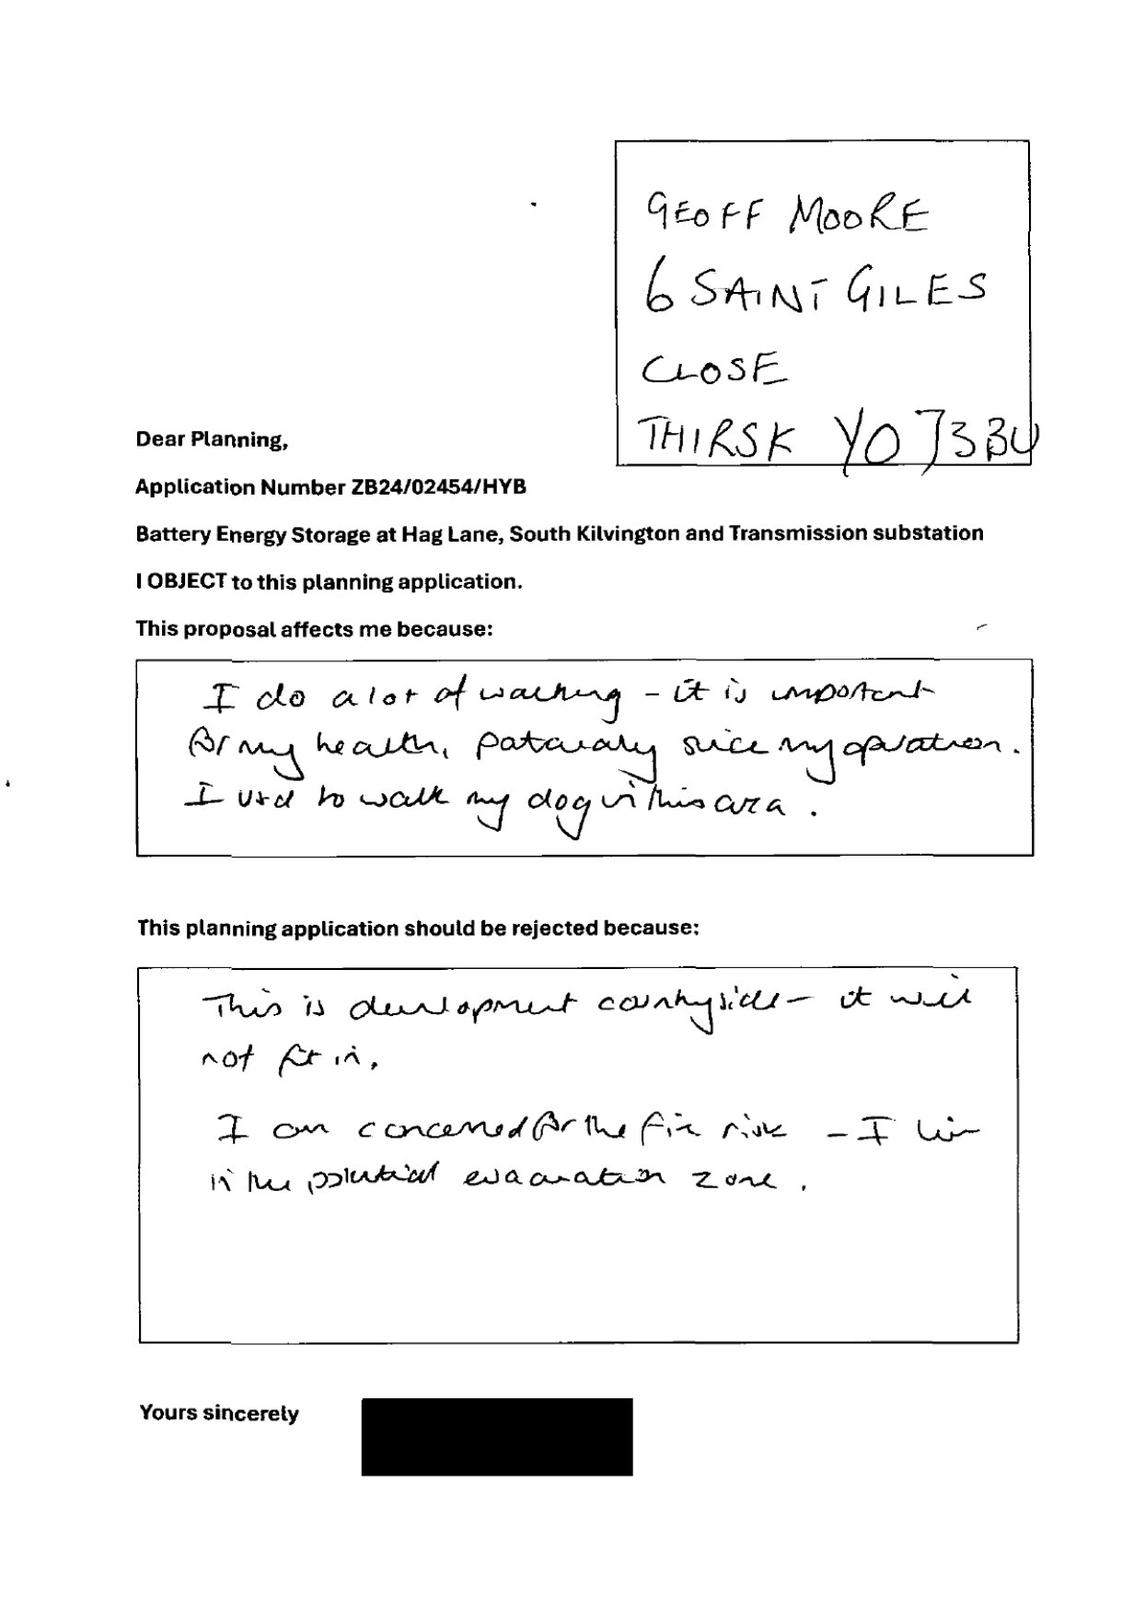 GEOFF MOORE
6 SAINT GILES
CLOSE
THIRSK YO7 3BU
Dear Planning,
Application Number ZB24/02454/HYB
Battery Energy Storage at Hag Lane, South Kilvington and Transmission substation
I OBJECT to this planning application.
This proposal affects me because:
I do a lot of walking - it is important
for my health, particularly since my operation.
I used to walk my dog in this area.
This planning application should be rejected because:
This is development countryside - it will
not fit in.
I am concerned for the fire risk - I live
in the potential evacuation zone.
Yours sincerely